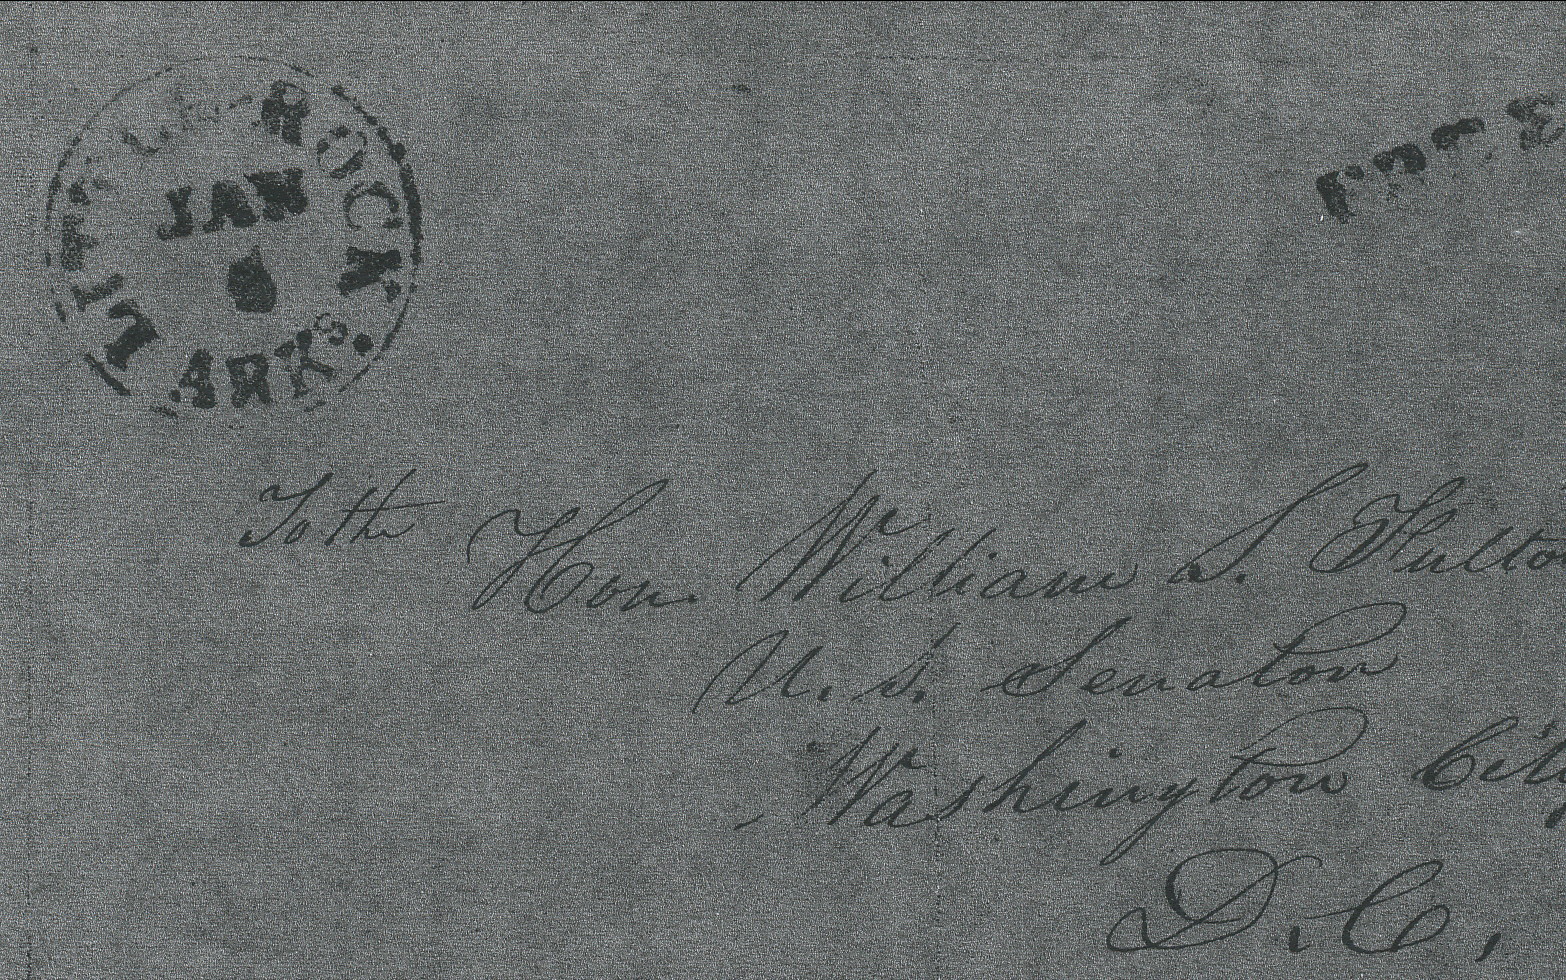 LITTLE ROCK.
JAN
ARKS.
FREE
To the Hon. William S. Fulton
U. S. Senator
Washington City
D. C.